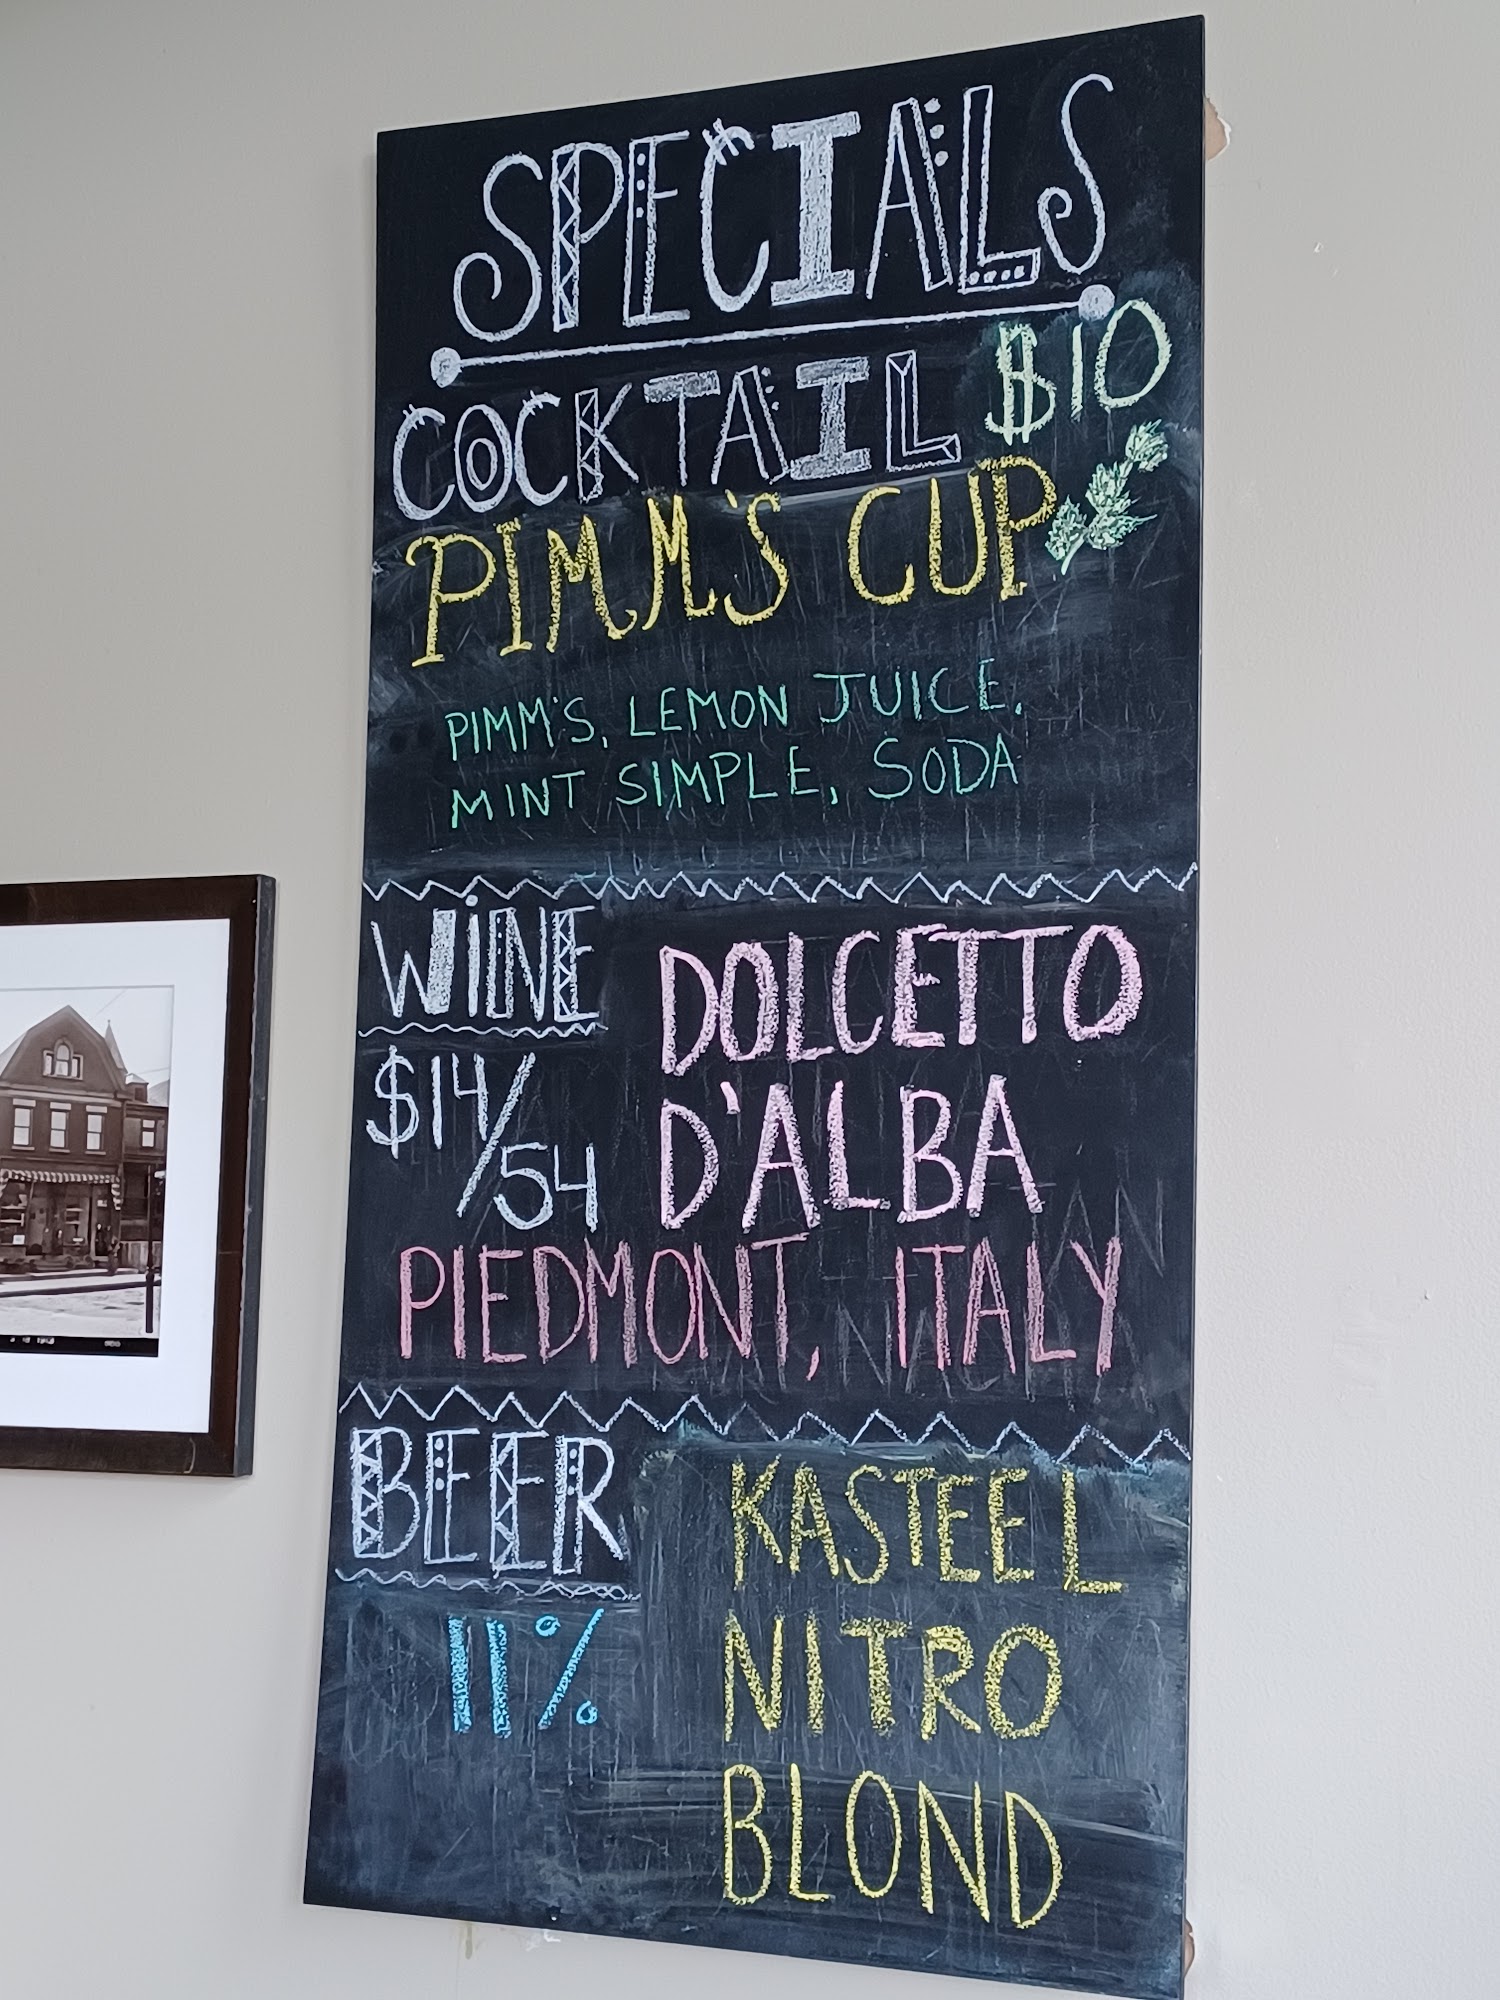 SPECIALS
COCKTAIL $10
PIMM'S CUP
PIMM'S, LEMON JUICE,
MINT SIMPLE, SODA
WINE
$14/54
DOLCETTO
D'ALBA
PIEDMONT, ITALY
BEER
11%
KASTEEL
NITRO
BLOND